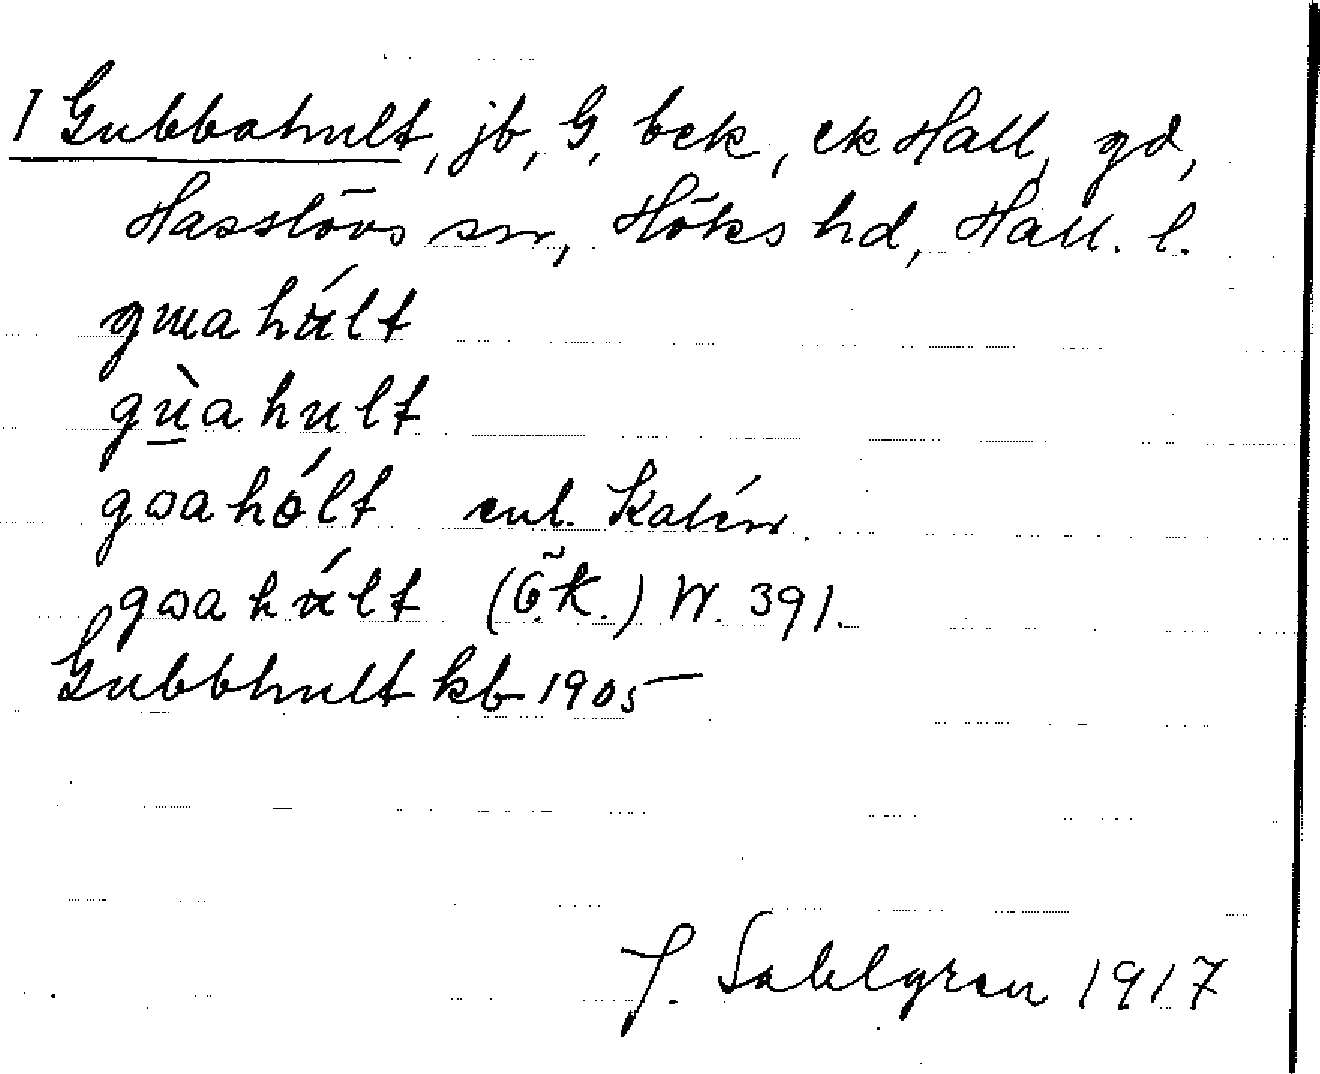 I Gubbahult, jb, G, bek, ek Hall, gd,
Hasslövs sn, Höks hd, Hall. l.
gɯahúlt
gù̲ahult
gɷahólt enl. Kalén.
gɷahúlt (Ö.K.) W. 391.
Gubbhult kb 1905
J. Sahlgren 1917